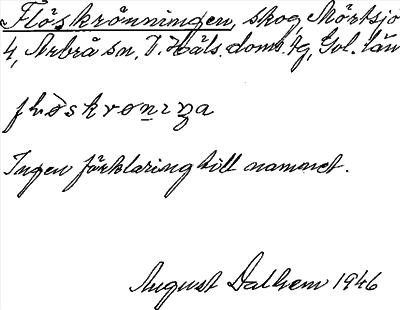 Flöskrönningen, skog, Mörtsjo
4, Arbrå sn, V. Häls. doms.tg, Gvl. län
flöskrønıza
Ingen förklaring till namnet.
August Dalhem 1946